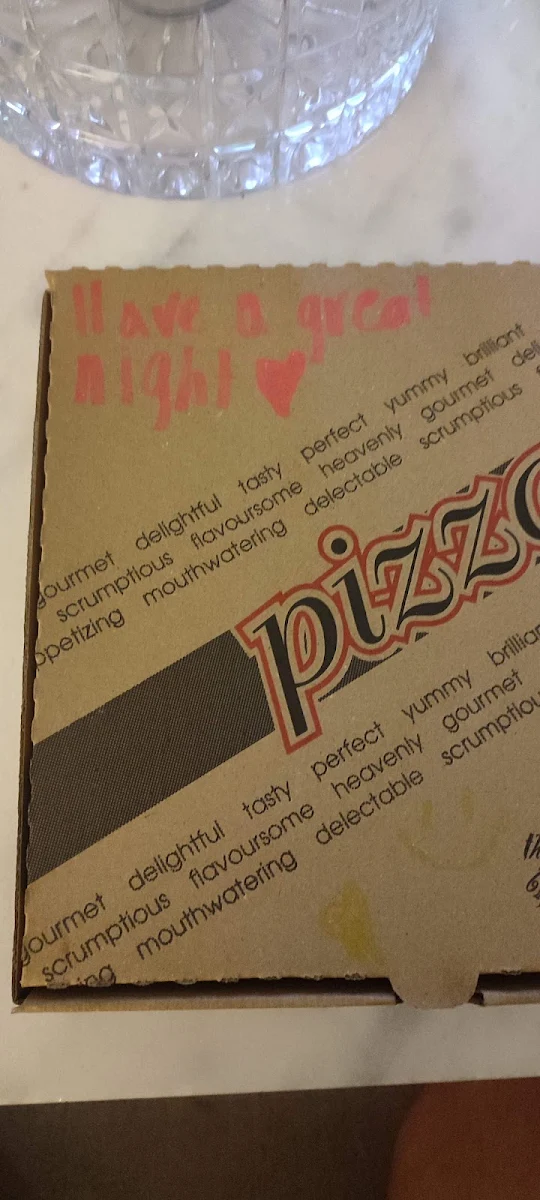 Have a great
night ♥
gourmet delightful tasty perfect yummy brilliant
scrumptious flavoursome heavenly gourmet
mouthwatering delectable scrumptious
pizz
gourmet delightful tasty perfect yummy
scrumptious flavoursome heavenly gourmet
mouthwatering delectable